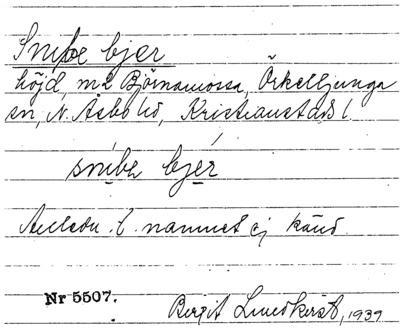 Snibe bjer
höjd, m2 Björnamossa, Örkelljunga
sn, N. Åsbo hd, Kristianstads l.
snibe bjér
Anledn. t. namnet ej känd.
Nr 5507.
Bergit Lundkerst, 1939